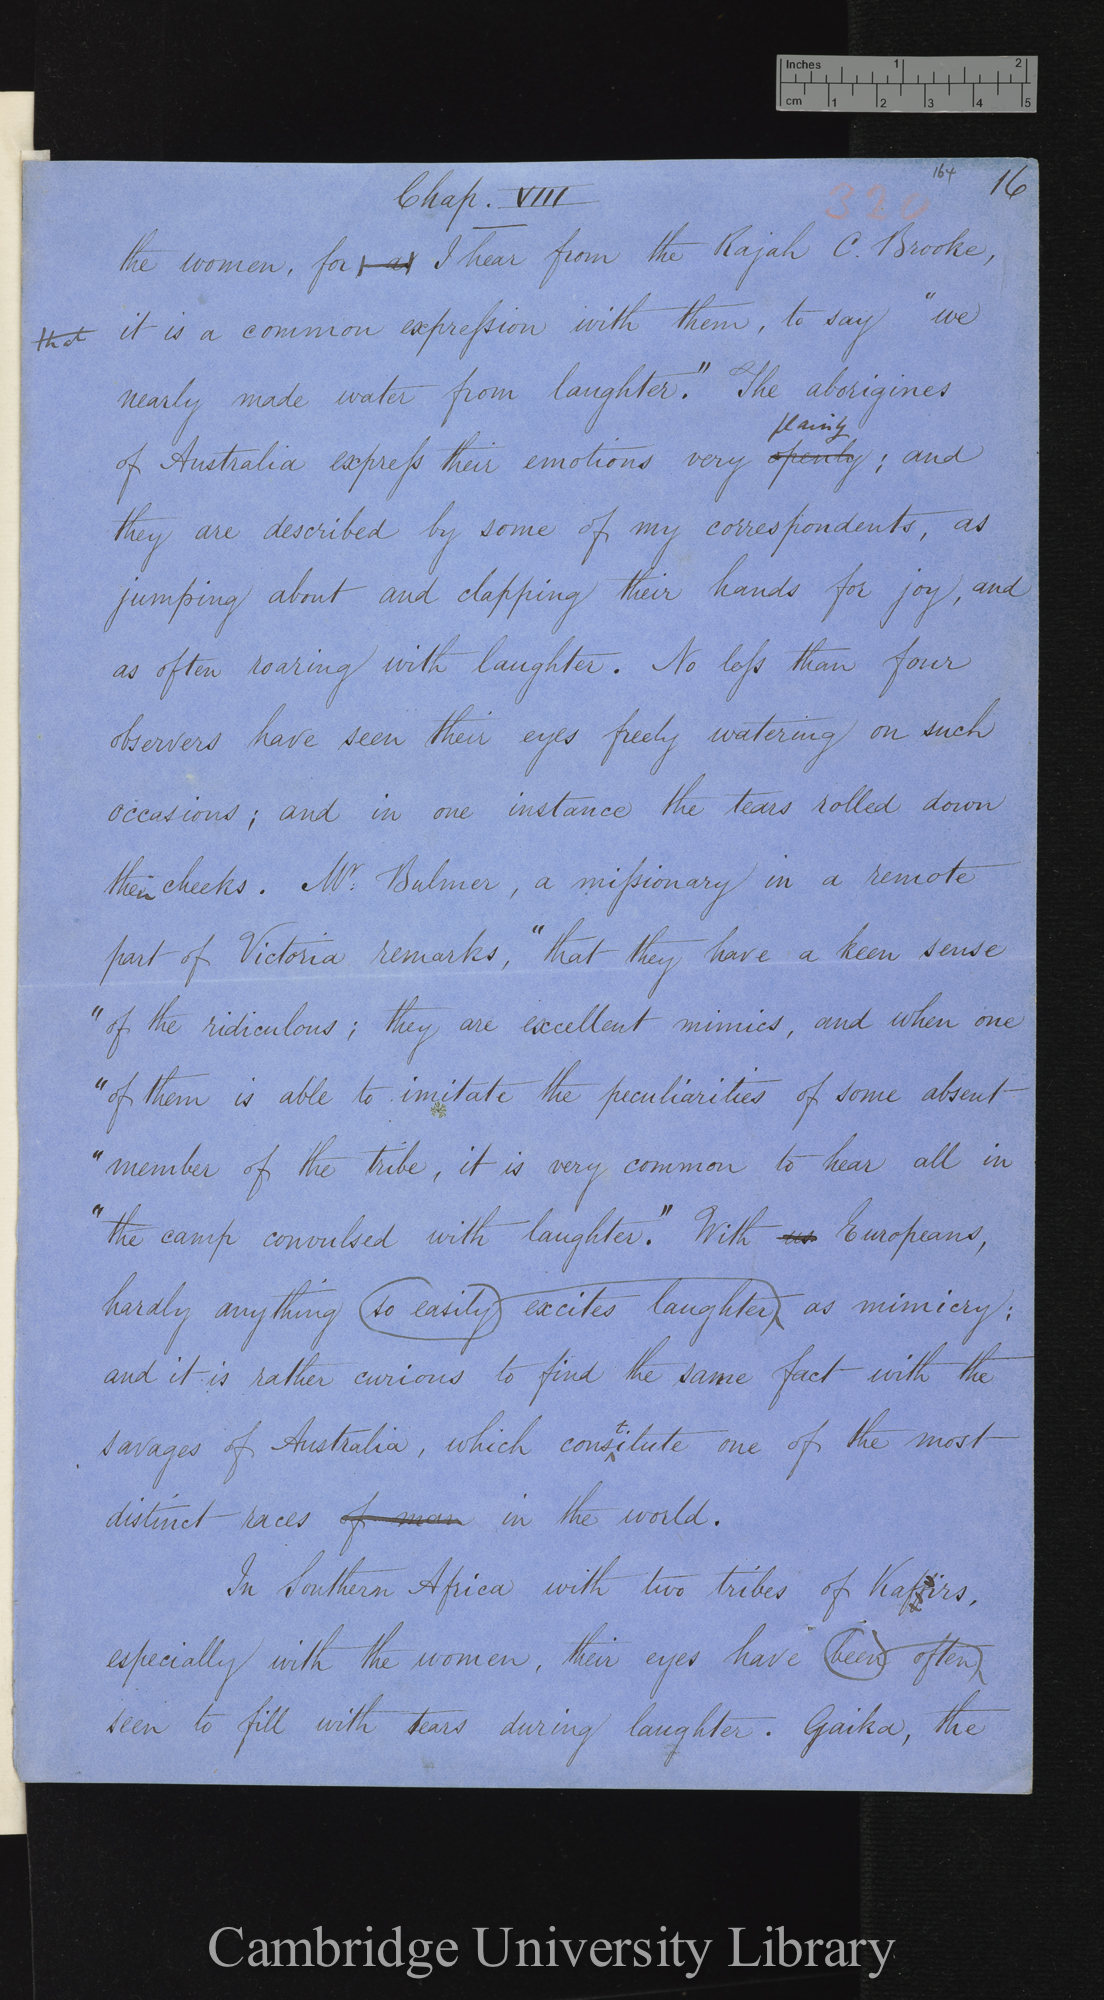 Inches 1 2
cm 1 2 3 4 5
164 16
320
Chap. VIII
the women, for as I hear from the Rajah C. Brooke,
that it is a common expression with them, to say "we
nearly made water from laughter." The aborigines
plainly
of Australia express their emotions very openly; and
they are described by some of my correspondents, as
jumping about and clapping their hands for joy, and
as often roaring with laughter. No less than four
observers have seen their eyes freely watering on such
occasions; and in one instance the tears rolled down
their cheeks. Mr. Bulmer, a missionary in a remote
part of Victoria remarks, "that they have a keen sense
"of the ridiculous; they are excellent mimics, and when one
"of them is able to imitate the peculiarities of some absent
"member of the tribe, it is very common to hear all in
"the camp convulsed with laughter." With us Europeans,
hardly anything so easily excites laughter as mimicry;
and it is rather curious to find the same fact with the
savages of Australia, which constitute one of the most
distinct races of man in the world.
In Southern Africa with two tribes of Kafirs,
especially with the women, their eyes have been often
seen to fill with tears during laughter. Gaika, the
Cambridge University Library